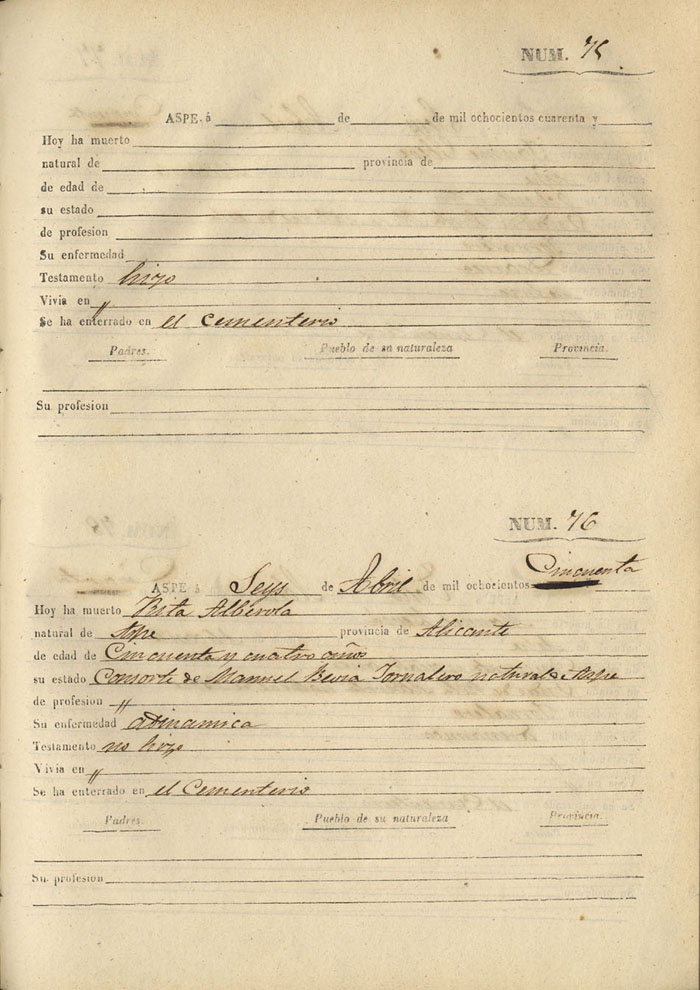 NUM. 75
ASPE á de de mil ochocientos cuarenta y
Hoy ha muerto
natural de provincia de
de edad de
su estado
de profesion
Su enfermedad
Testamento hizo
Vivia en "
Se ha enterrado en el cementerio
Padres. Pueblo de su naturaleza Provincia.
Su profesion
NUM. 76
Cincuenta
ASPE á Seys de Abril de mil ochocientos
Hoy ha muerto Rita Alberola
natural de Aspe provincia de Alicante
de edad de Cincuenta y cuatro años
su estado Consorte de Manuel Bevia Jornalero natural de Aspe
de profesion "
Su enfermedad adinamica
Testamento no hizo
Vivia en "
Se ha enterrado en el Cementerio
Padres. Pueblo de su naturaleza Provincia.
Su profesion